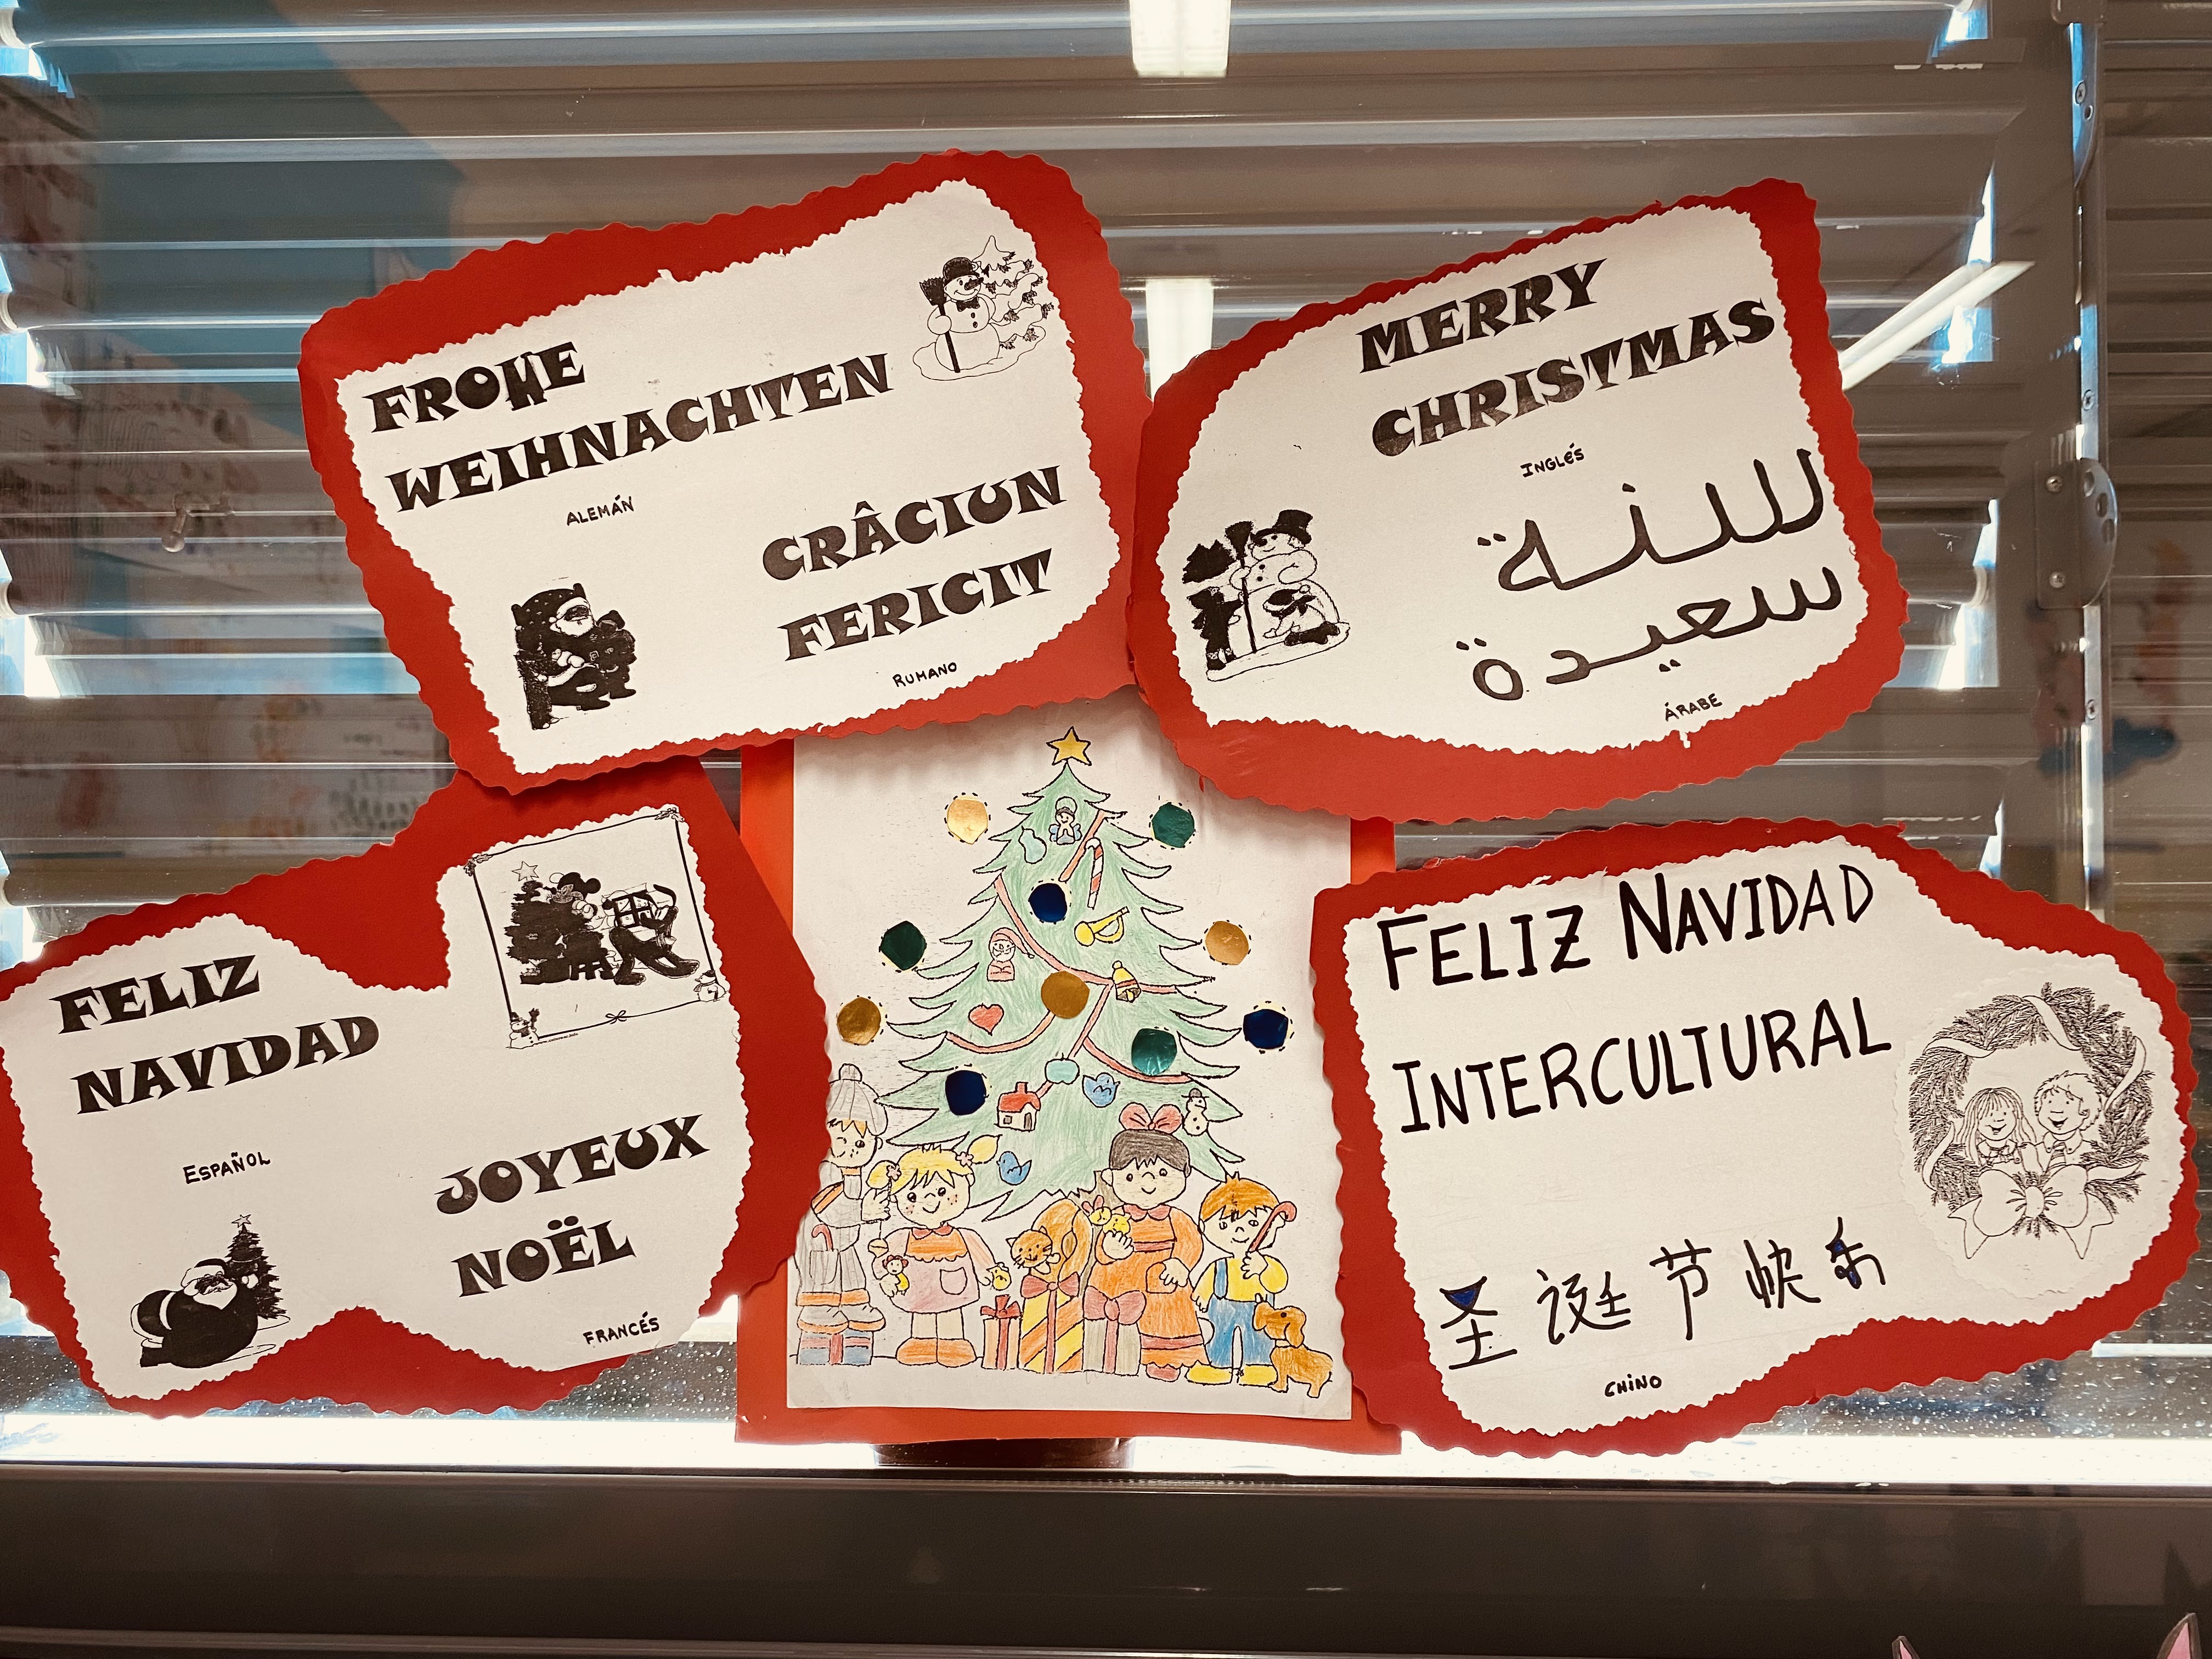 FROHE
WEIHNACHTEN
ALEMÁN
CRÂCIUN
FERICIT
RUMANO
MERRY
CHRISTMAS
INGLÉS
سنة
سعيدة
ÁRABE
FELIZ
NAVIDAD
ESPAÑOL
JOYEUX
NOËL
FRANCÉS
FELIZ NAVIDAD
INTERCULTURAL
圣诞节快乐
CHINO